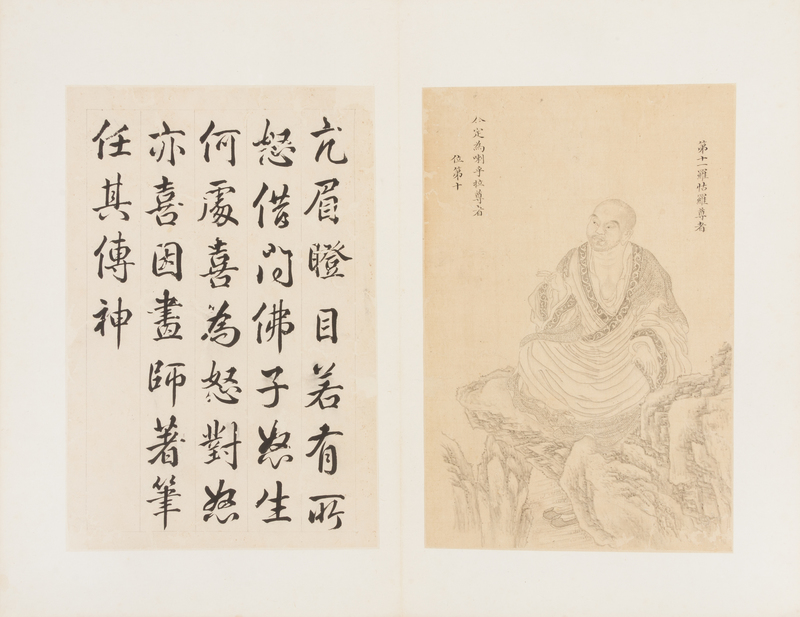 第十一羅怙羅尊者
今定為喇乎拉尊者
位第十
亢眉瞪目若有所
怒借問佛子怒生
何處喜為怒對怒
亦喜因畫師著筆
任其傳神